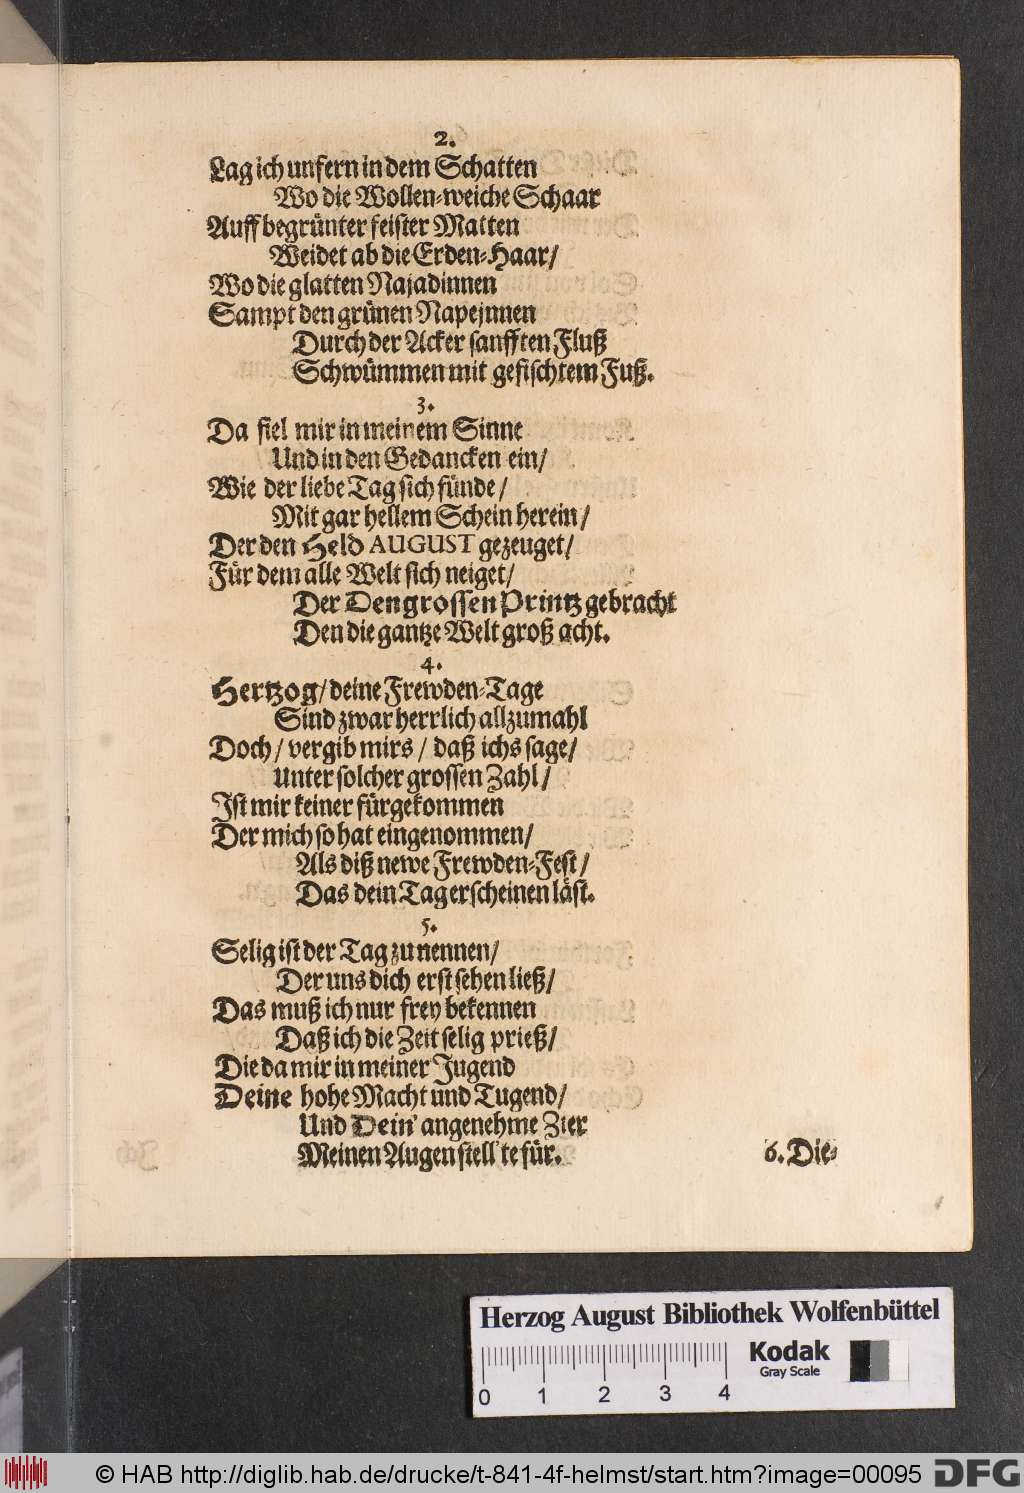 2.
Lag ich unfern in dem Schatten
Wo die Wollen-weiche Schaar
Auff begrünter feister Matten
Weidet ab die Erden-Haar/
Wo die glatten Najadinnen
Sampt den grünen Napejnnen
Durch der Acker sanfften Fluß
Schwümmen mit gefischtem Fuß.
3.
Da fiel mir in meinem Sinne
Und in den Gedancken ein/
Wie der liebe Tag sich fünde/
Mit gar hellem Schein herein/
Der den Held AUGUST gezeuget/
Für dem alle Welt sich neiget/
Der Den grossen Printz gebracht
Den die gantze Welt groß acht.
4.
Hertzog/ deine Frewden-Tage
Sind zwar herrlich allzumahl
Doch/ vergib mirs/ daß ichs sage/
Unter solcher grossen Zahl/
Ist mir keiner fürgekommen
Der mich so hat eingenommen/
Als diß newe Frewden-Fest/
Das dein Tag erscheinen läst.
5.
Selig ist der Tag zu nennen/
Der uns dich erst sehen ließ/
Das muß ich nur frey bekennen
Daß ich die Zeit selig prieß/
Die da mir in meiner Jugend
Deine hohe Macht und Tugend/
Und Dein' angenehme Zier
Meinen Augen stell'te für.
6. Die-
Herzog August Bibliothek Wolfenbüttel
Kodak
Gray Scale
0 1 2 3 4
© HAB http://diglib.hab.de/drucke/t-841-4f-helmst/start.htm?image=00095
DFG